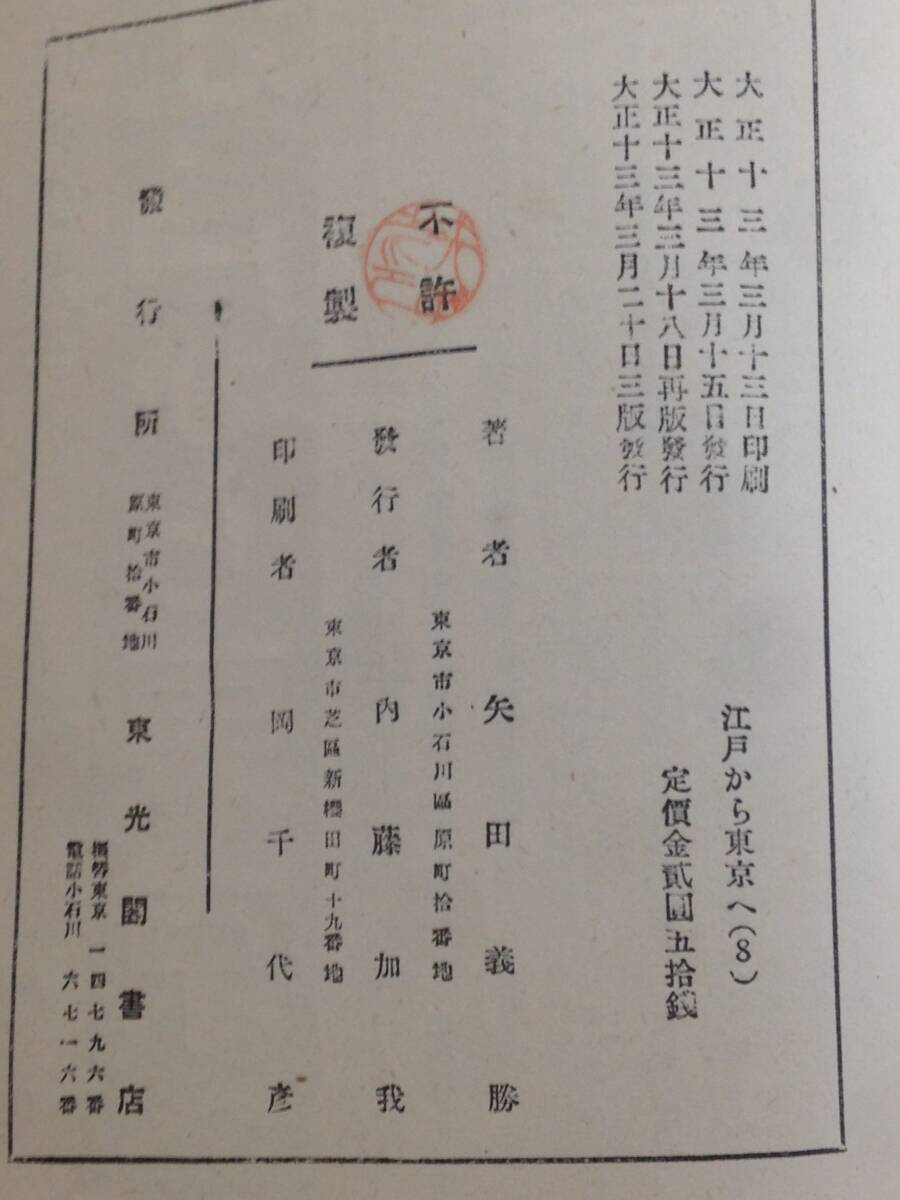 大正十三年三月十三日印刷
大正十三年三月十五日發行
大正十三年三月十八日再版發行
大正十三年三月二十日三版發行
江戸から東京へ(8)
定價金貳圓五拾錢
不許
複製
著者 矢田義勝
東京市小石川區原町拾番地
發行者 內藤加我
東京市芝區新櫻田町十九番地
印刷者 岡千代彥
發行所
東京市小石川
原町拾番地
東光閣書店
振替東京一四七九六番
電話小石川六七一六番